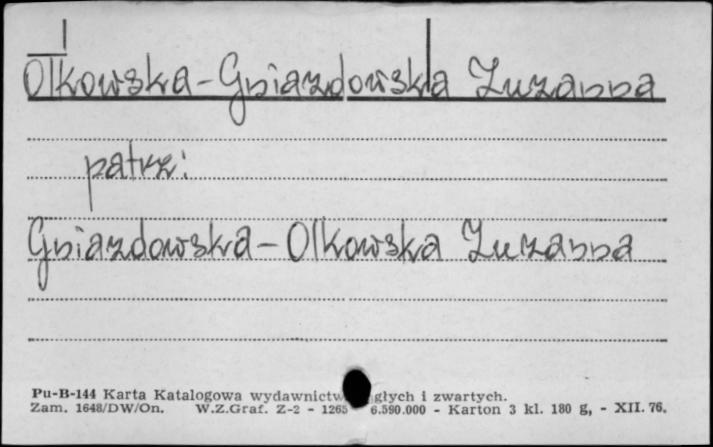 Olkowska-Gniazdowska Zuzanna
patrz:
Gniazdowska-Olkowska Zuzanna
Pu-B-144 Karta Katalogowa wydawnictw głych i zwartych.
Zam. 1648/DW/On. W.Z.Graf. Z-2 - 1265 6.590.000 - Karton 3 kl. 180 g, - XII. 76.